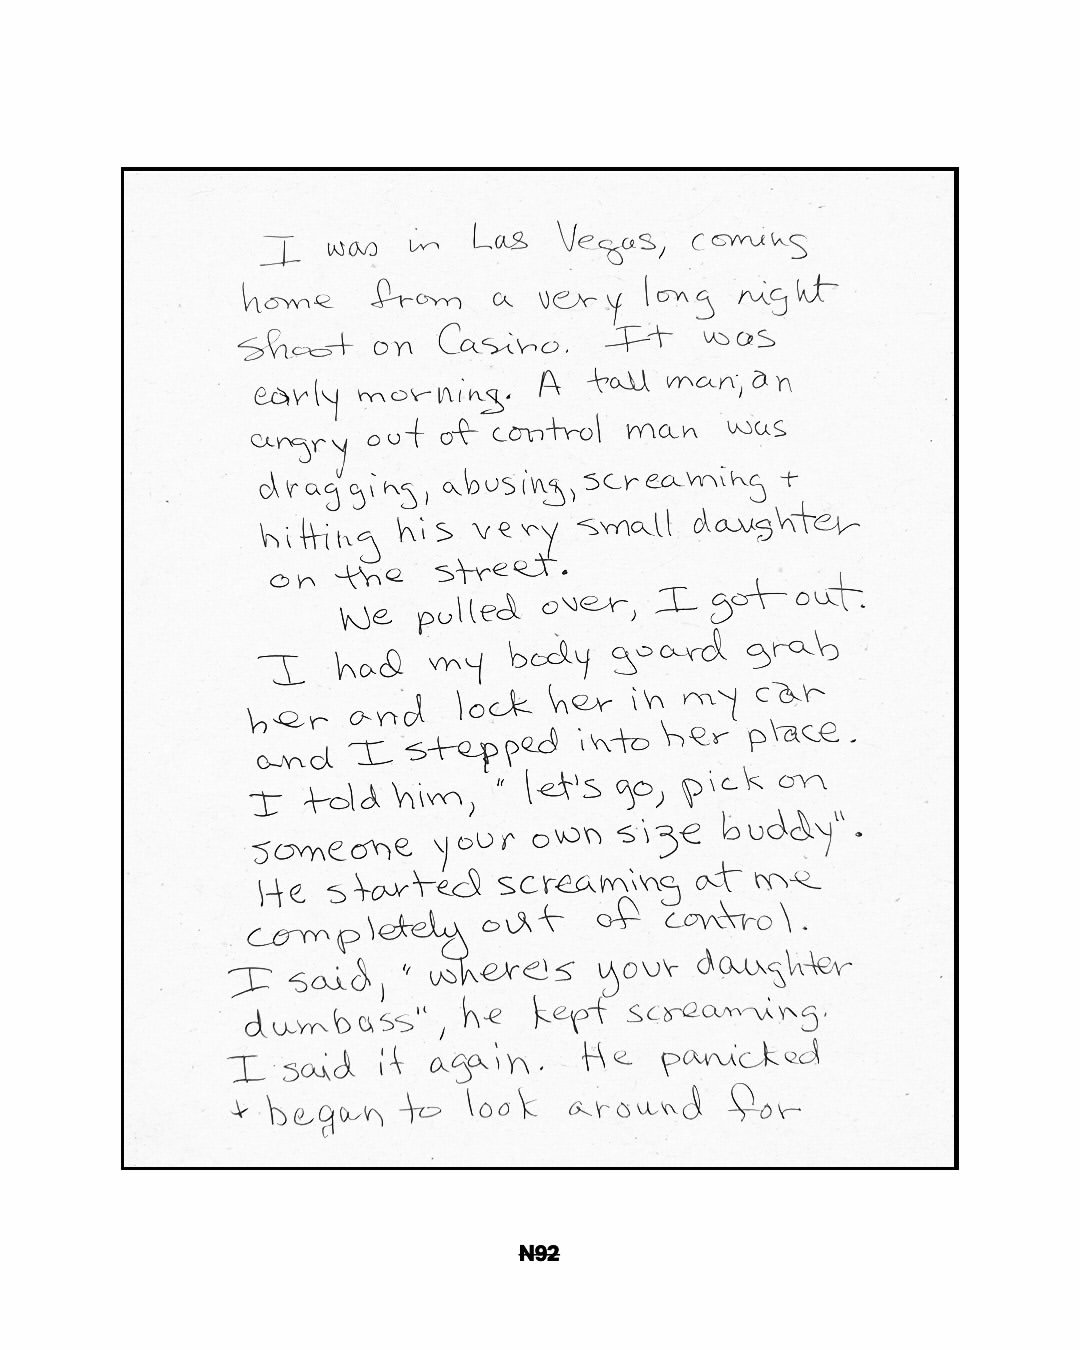 I was in Las Vegas, coming
home from a very long night
shoot on Casino. It was
early morning. A tall man, an
angry out of control man was
dragging, abusing, screaming +
hitting his very small daughter
on the street.
We pulled over, I got out.
I had my body guard grab
her and lock her in my car
and I stepped into her place.
I told him, "let's go, pick on
someone your own size buddy".
He started screaming at me
completely out of control.
I said, "where's your daughter
dumbass", he kept screaming.
I said it again. He panicked
+ began to look around for
N92